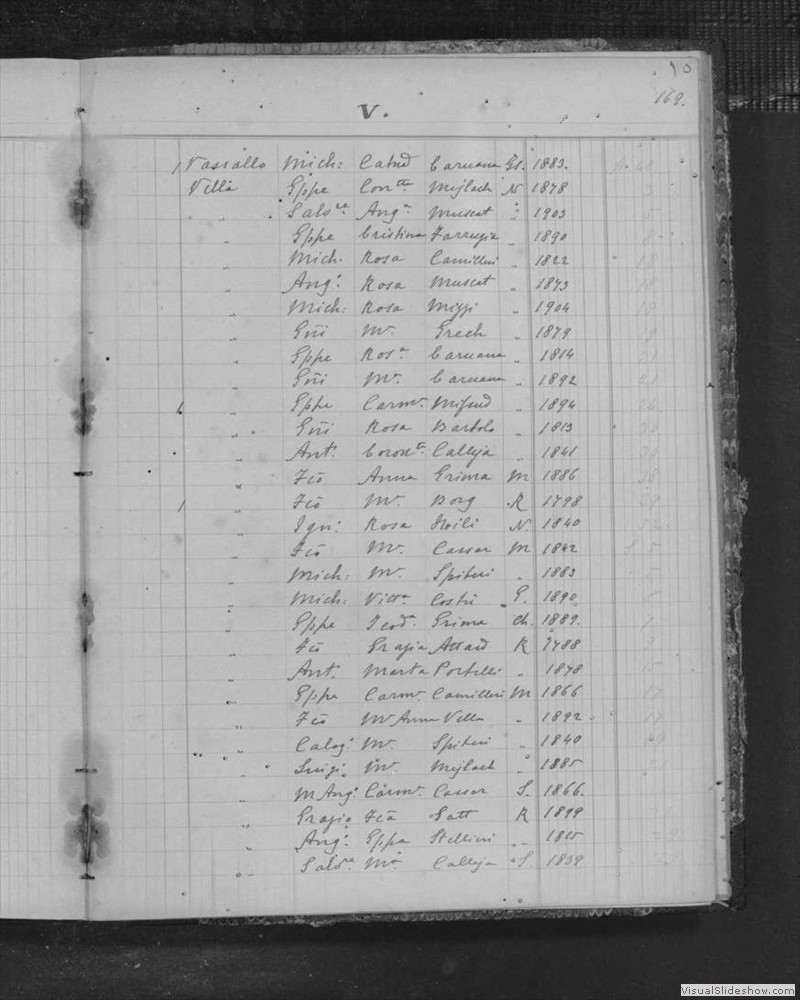 10
169.
V.
Vassallo Mich: Catnd Caruana Gs. 1883.
Vella Eppe Con.tta Mejlach N 1878
" " Salo.re Ang.a Muscat " 1903
" Eppe Cristina Farrugia " 1890
" Mich. Rosa Camilleri " 1822
" Ang.o Rosa Muscat " 1873
" Mich: Rosa Mizzi " 1904
" Gūi M.a Grech " 1879
" Eppe Ros.a Caruana " 1814
" Gūi M.a Caruana " 1892
" Eppe Carm.a Mifsud " 1894
" Gūi Rosa Bartolo " 1813
" Ant.o Coron.ta Calleja " 1841
" Fcō Anna Grima M 1886
1 " Fcō M.a Borg R 1798
" Ign: Rosa N. 1840
" Fcō M.a Cassar M 1842
" Mich: M.a Spiteri " 1883
" Mich: Vitt.a G. 1890
" Eppe Teod.a Grima Ch. 1889.
" Fcō Grazia Attard R 1788
" Ant.o Marta Portelli " 1878
" Eppe Carm.a Camilleri M 1866
" Fcō M.a Anna Vella " 1892
" Calog.o M.a Spiteri " 1840
" Luigi M.a Mejlach " 1885
" M Ang.o Carm.a Cassar S. 1866.
" Grazio Fcā Satt R 1899
" Ang.o Eppa Stellini " 1815
" Salo.re M.a Calleja S. 1839
VisualSlideshow.com